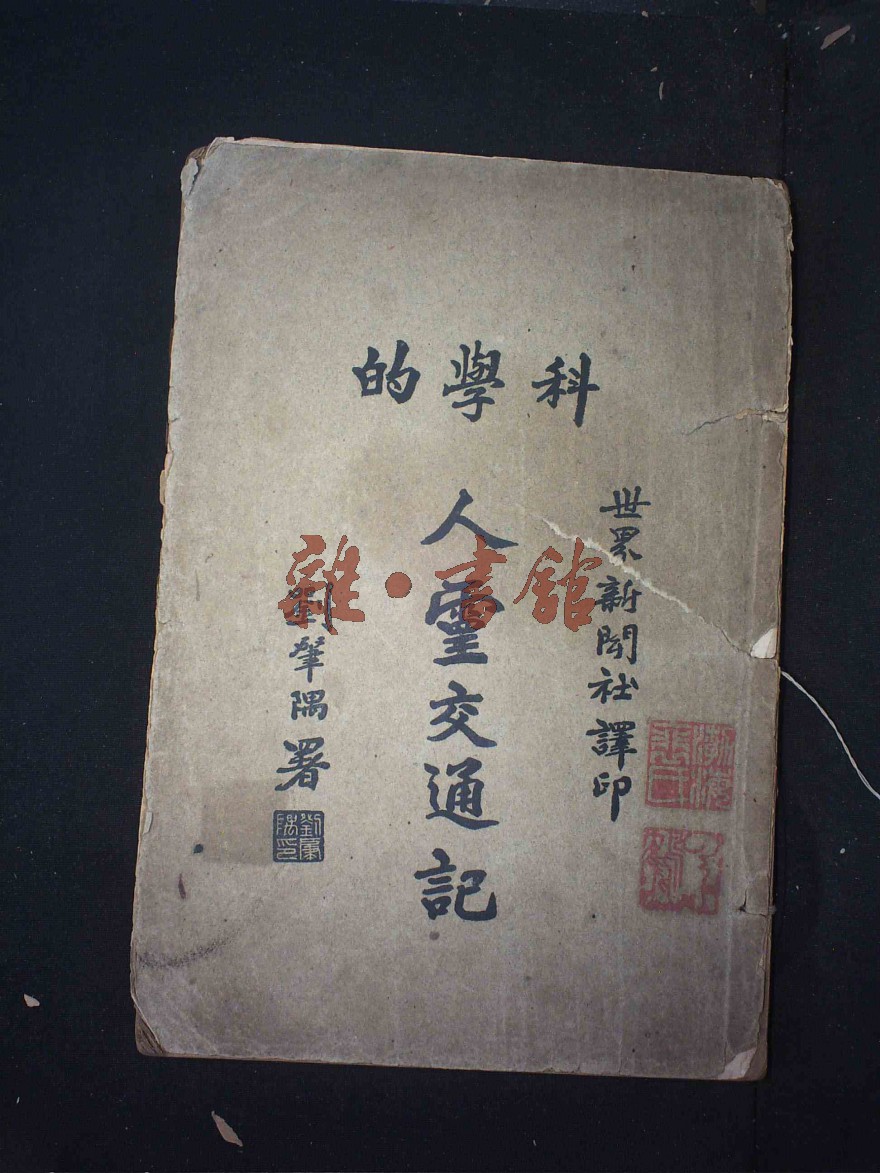 科學的
世界新聞社譯印
人靈交通記
劉肇隅署
劉肇隅印
雜·書館